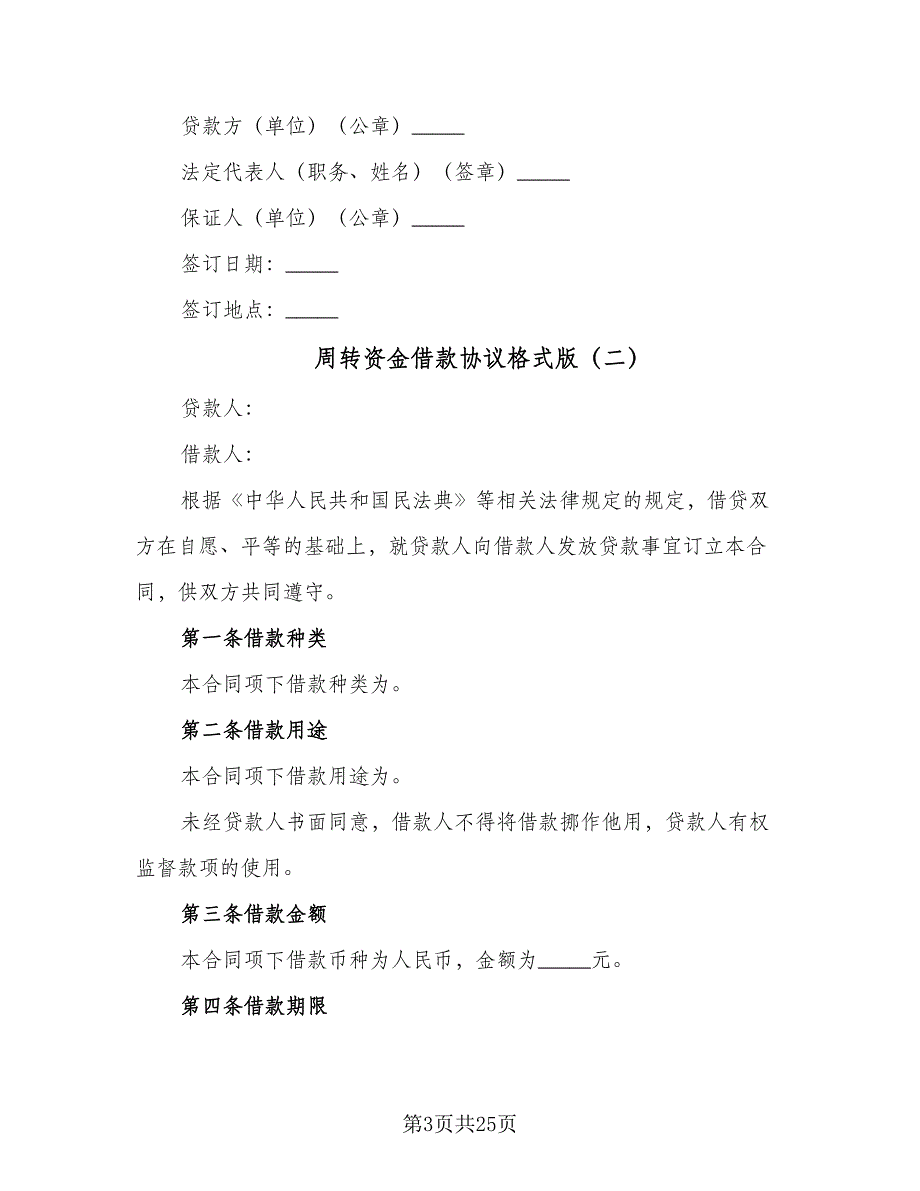 贷款方（单位）（公章）_____
法定代表人（职务、姓名）（签章）_____
保证人（单位）（公章）_____
签订日期：_____
签订地点：_____
周转资金借款协议格式版（二）
贷款人：
借款人：
根据《中华人民共和国民法典》等相关法律规定的规定，借贷双
方在自愿、平等的基础上，就贷款人向借款人发放贷款事宜订立本合
同，供双方共同遵守。
第一条借款种类
本合同项下借款种类为。
第二条借款用途
本合同项下借款用途为。
未经贷款人书面同意，借款人不得将借款挪作他用，贷款人有权
监督款项的使用。
第三条借款金额
本合同项下借款币种为人民币，金额为_____元。
第四条借款期限
第3页共25页